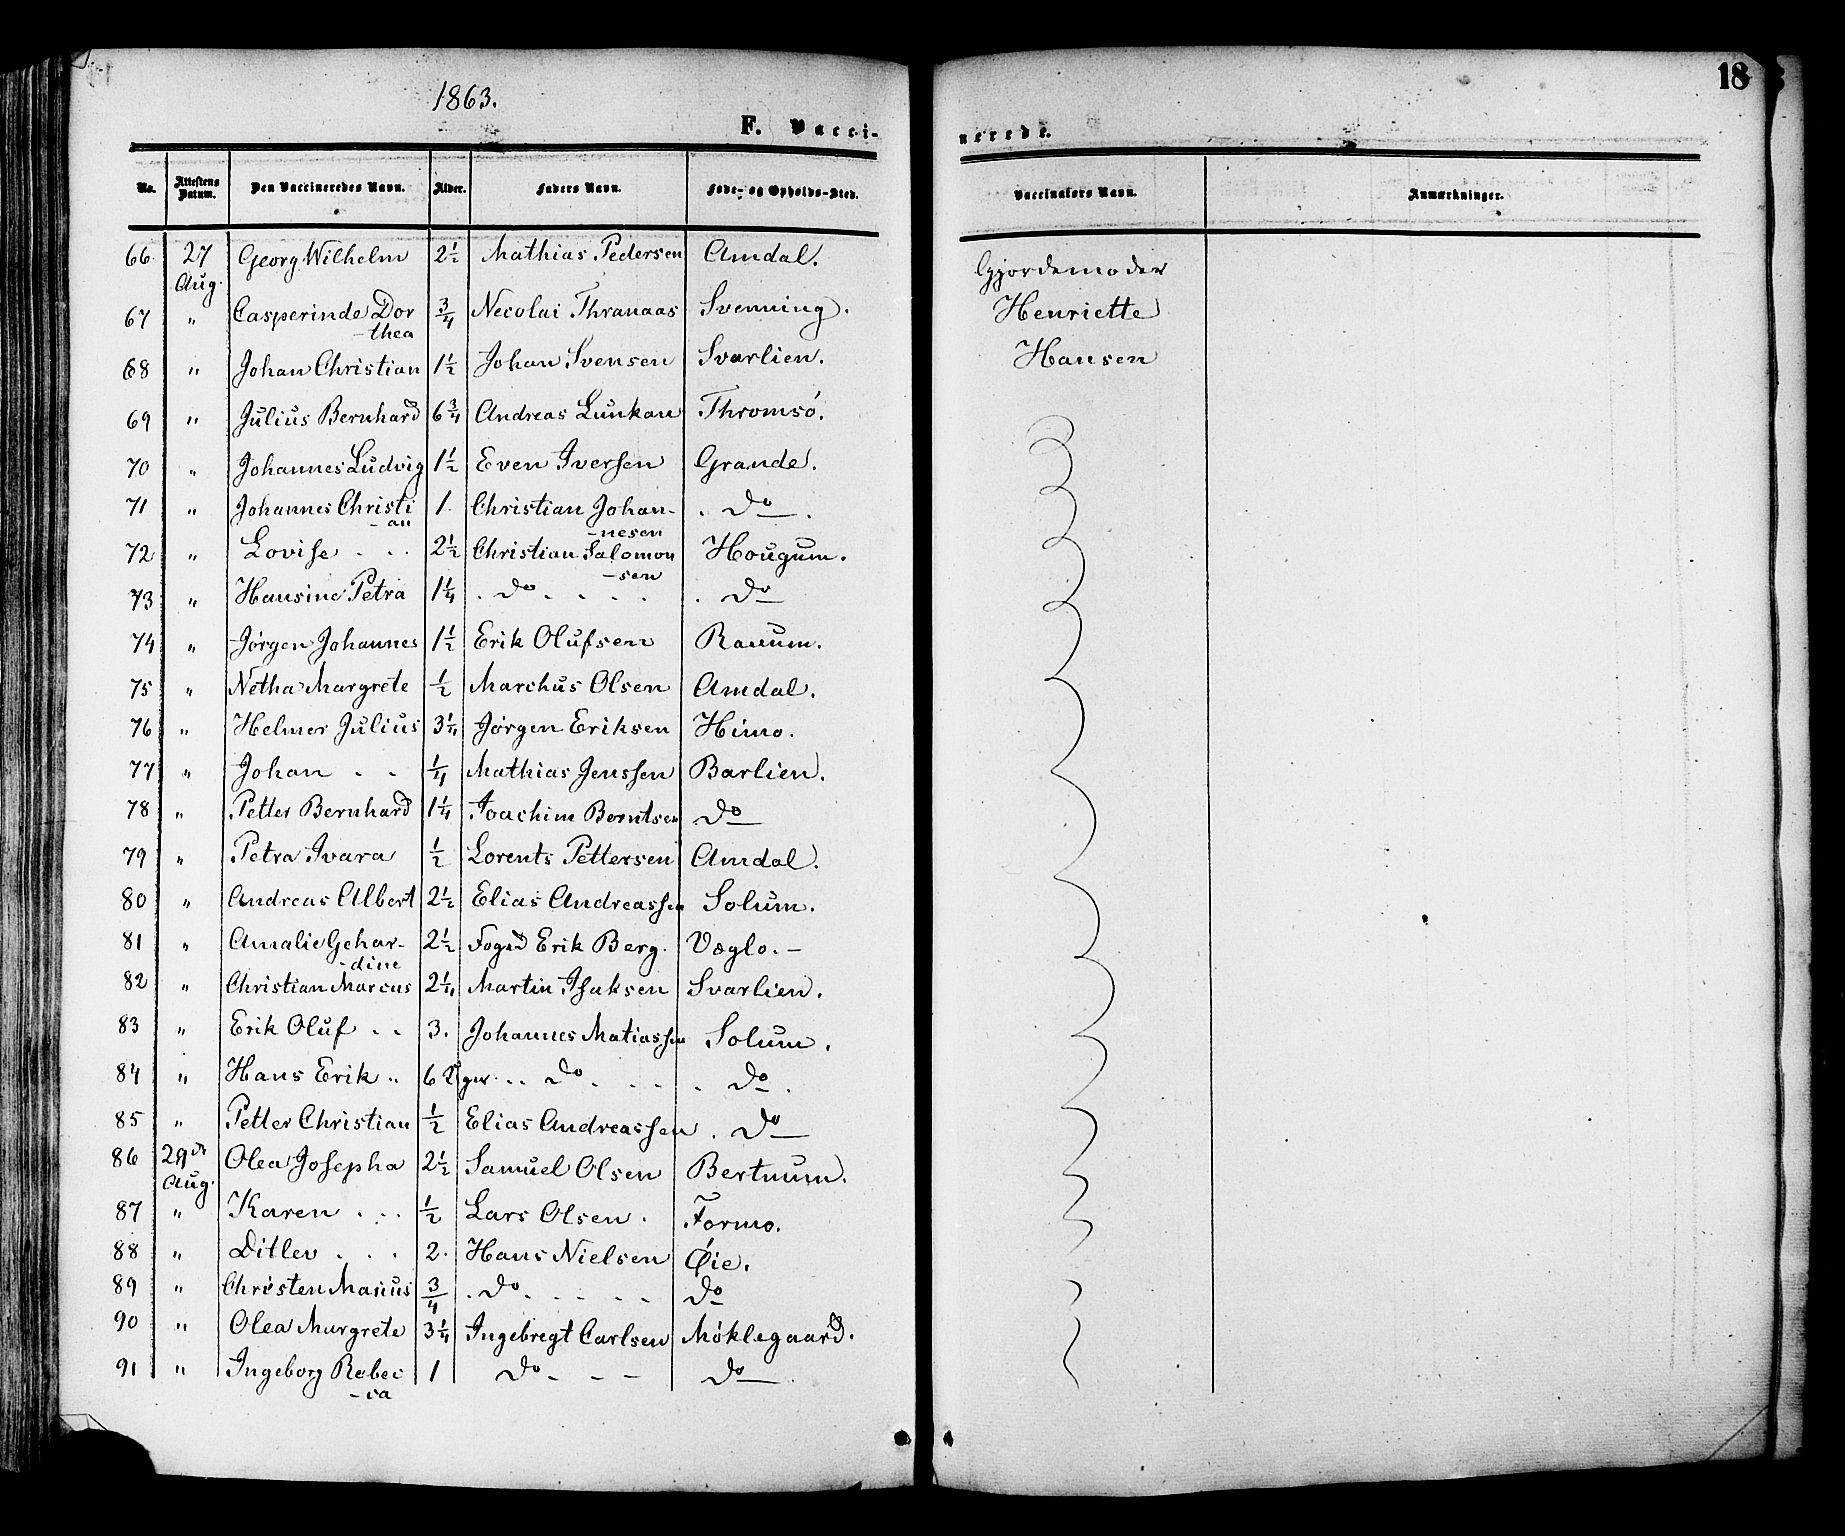 18
1863.
F. Vacci-
nerede.
No. Attestens Datum. Den Vaccineredes Navn. Alder. Faders Navn. Føde- og Opholds-Sted. Vaccinators Navn. Anmærkninger.
66. 27 Aug. Georg Wilhelm 2½ Mathias Pedersen Amdal. Gjordemoder
67 " Casperinde Dor-thea ¾ Necolai Thranaas Svenning. Henriette
68 " Johan Christian 1½ Johan Svensen Svarlien. Hansen
69 " Julius Bernhard 6¾ Andreas Lunkan Thromsö.
70 " Johannes Ludvig 1½ Even Iversen Grande.
71 " Johannes Christi-an 1. Christian Johan-nesen . do .
72 " Lovise . . . 2½ Christian Salomon-sen Hougum.
73 " Hansine Petra 1¼ . do . . . . . do
74 " Jørgen Johannes 1½ Erik Olufsen Ranum.
75 " Netha Margrete ½ Marchus Olsen Amdal.
76 " Helmer Julius 3¼ Jørgen Eriksen Himo.
77 " Johan . . ¼ Mathias Jenssen Barlien.
78 " Petter Bernhard 1¼ Joachim Berntsen do
79 " Petra Ivara ½ Lorents Pettersen Amdal.
80 " Andreas Albert 2½ Elias Andreassen Solum.
81 " Amalie Gehar-dine 2½ Foged Erik Berg. Væglo. -
82 " Christian Marcus 2¼ Martin Isaksen Svarlien.
83 " Erik Oluf . . 3. Johannes Matiassen Solum.
84 " Hans Erik " 6 Uger . . . do . . . . do .
85 " Petter Christian ½ Elias Andreassen . do
86 29de Aug. Olea Josepha 2½ Samuel Olsen Bertnum.
87 " Karen . . . ½ Lars Olsen . Formo.
88 " Ditlev . . . 2. Hans Nielsen Øie.
89 " Christen Marius ¾ . do . . . . . do
90 " Olea Margrete 3¼ Ingebregt Carlsen Møklegaard.
91 " Ingeborg Rebec-ca 1 do . - - - do .